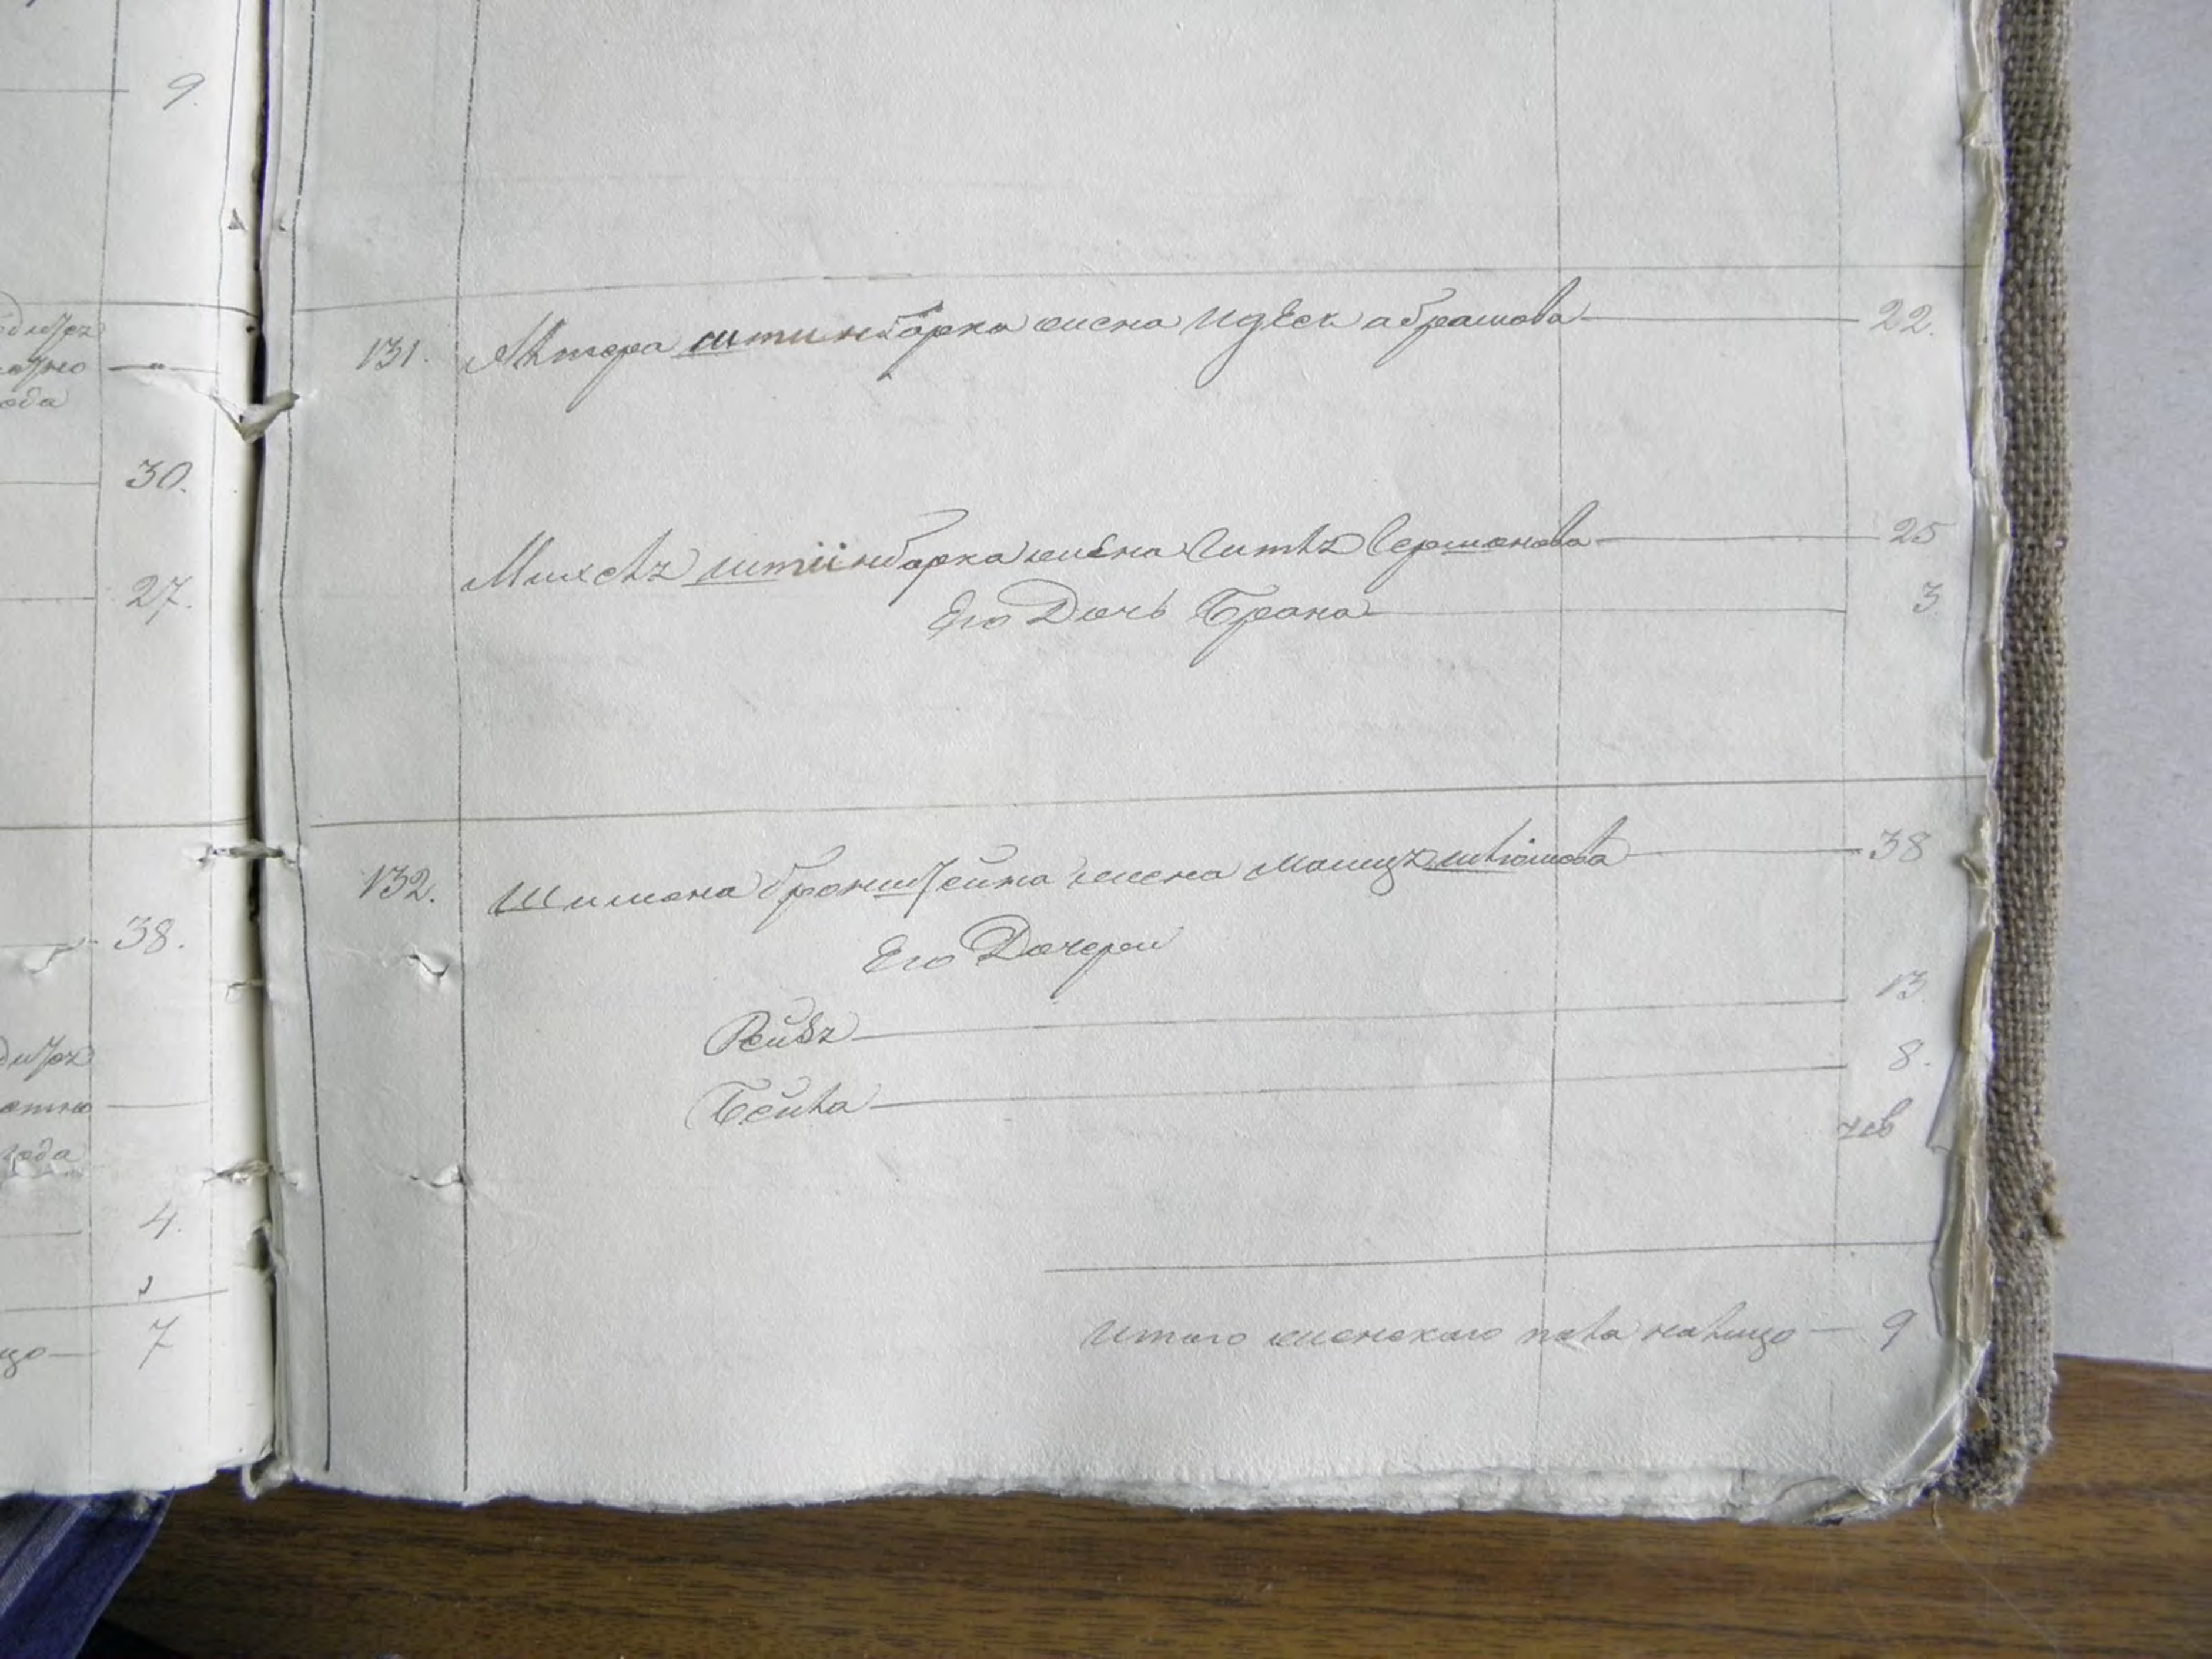 9.
30.
27.
38.
года
4.
7
131. Мтера штинбарка жена Идеся абрамова 22.
Михель штинбарка жена Гитль Германова 25
Его Дочь Брана 3.
132. Шимона бронштейна жена Маицъ шліомова 38
Его Дочереи
Рейзъ 13
Бейла 8.
чев
Итого женскаго пола налицо 9